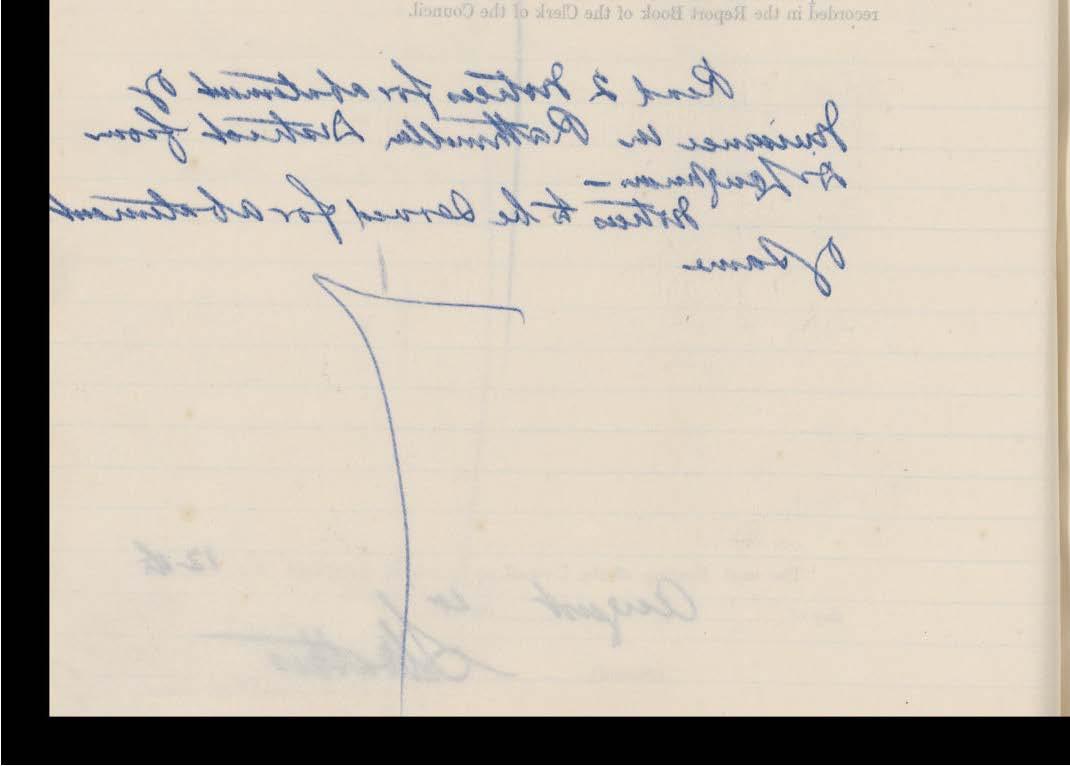 recorded in the Report Book of the Clerk of the Council.
Read 2 Notices for abatement of
Nuisances in Rathmullen District from
Dr
Notices to be served for abatement
of same
12th
August